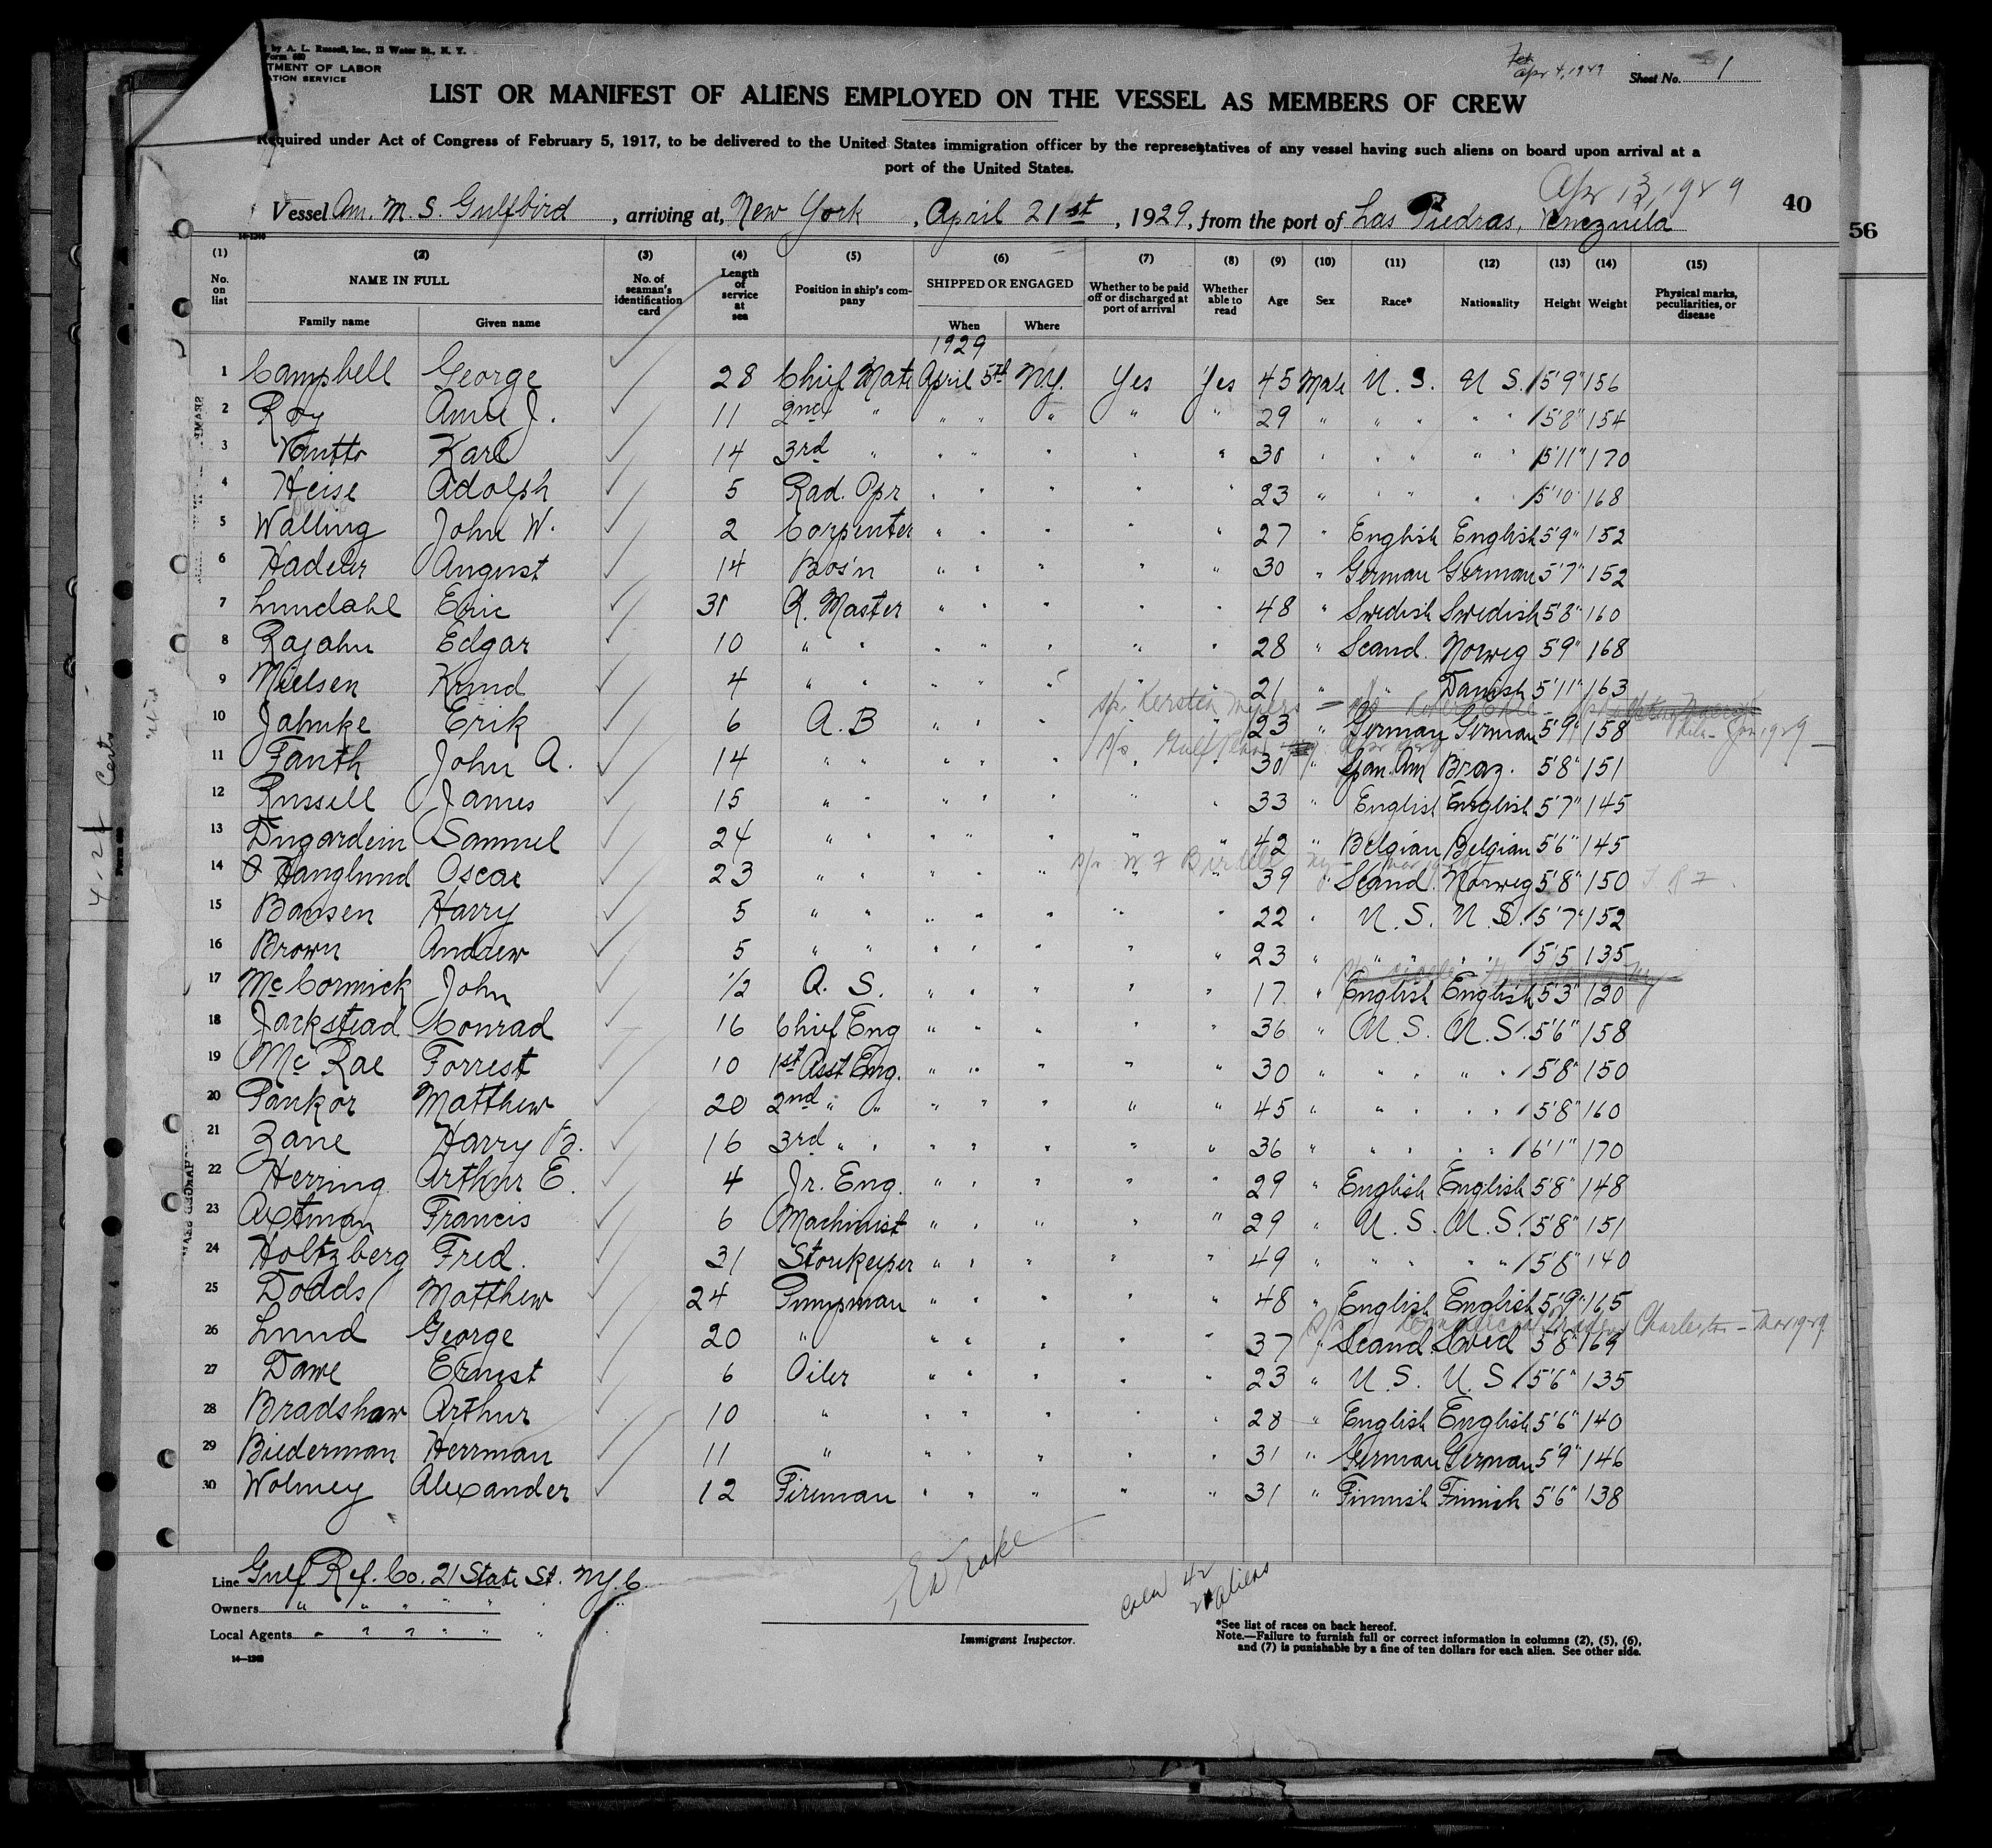 by A. L. Russell, Inc., 13 Water St., N. Y.
Form 680
TMENT OF LABOR
ATION SERVICE
Apr 4, 1929
Sheet No. 1
LIST OR MANIFEST OF ALIENS EMPLOYED ON THE VESSEL AS MEMBERS OF CREW
Required under Act of Congress of February 5, 1917, to be delivered to the United States immigration officer by the representatives of any vessel having such aliens on board upon arrival at a
port of the United States.
Apr 13, 1929
Vessel Am. M. S. Gulfbird, arriving at, New York, April 21st, 1929, from the port of Las Piedras, Venezuela
40
56
14-1240
(1) (2) (3) (4) (5) (6) (7) (8) (9) (10) (11) (12) (13) (14) (15)
No. on list NAME IN FULL No. of seaman's identification card Length of service at sea Position in ship's company SHIPPED OR ENGAGED Whether to be paid off or discharged at port of arrival Whether able to read Age Sex Race* Nationality Height Weight Physical marks, peculiarities, or disease
Family name Given name When Where
1929
1 Campbell George 28 Chief Mate April 5th N.Y. Yes Yes 45 Male U. S. U. S. 5'9" 156
2 Roy 11 2nd " " " " " " 29 " " " " " 5'8" 154
3 Karl 14 3rd " " " " " " 30 " " " " " 5'11" 170
4 Heise Adolph 5 Rad. Opr " " " " " 23 " " " " 5'10" 168
5 Walling John W. 2 Carpenter " " " " " 27 " English English 5'9" 152
6 Hadeler August 14 Bos'n " " " " " 30 " German German 5'7" 152
7 Lundahl Eric 31 Q. Master " " " " " 48 " Swedish Swedish 5'8" 160
8 Rajahn Edgar 10 " " " " " " " 28 " Scand. Norweg 5'9" 168
9 Nielsen Knud 4 " " " " " " " 21 " " Danish 5'11" 163
10 Jahnke Erik 6 A. B " " " " " 23 " German German 5'9" 158
11 Fanth John A. 14 " " " " " " " 30 " Span. Am Braz. 5'8" 151
12 Russell James 15 " " " " " " " 33 " English English 5'7" 145
13 Dugardein Samuel 24 " " " " " " " 42 " Belgian Belgian 5'6" 145
14 Hanglund Oscar 23 " " " " " " " 39 " Scand. Norweg 5'8" 150
15 Bansen Harry 5 " " " " " " " 22 " U. S. U. S. 5'7" 152
16 Brown Andrew 5 " " " " " " " 23 " " " " " 5'5 135
17 McCormick John 1/2 O. S. " " " " " 17 " English English 5'3" 120
18 Jarkstead Conrad 16 Chief Eng " " " " " 36 " U. S. U. S. 5'6" 158
19 McRae Forrest 10 1st Asst Eng. " " " " " 30 " " " " " 5'8" 150
20 Pankor Matthew 20 2nd " " " " " " " 45 " " " " " 5'8" 160
21 Zane Harry B. 16 3rd " " " " " " " 36 " " " " " 6'1" 170
22 Herring Arthur E. 4 Jr. Eng. " " " " " 29 " English English 5'8" 148
23 Axtman Francis 6 Machinist " " " " " 29 " U. S. U. S. 5'8" 151
24 Holtzberg Fred. 31 Storekeeper " " " " " 49 " " " " " 5'8" 140
25 Dodds Matthew 24 Pumpman " " " " " 48 " English English 5'9" 165
Charleston - Mar 1929
26 Lund George 20 " " " " " " 37 " Scand. Swed 5'8" 169
27 Dawe Ernest 6 Oiler " " " " " 23 " U. S. U. S. 5'6" 135
28 Bradshaw Arthur 10 " " " " " " 28 " English English 5'6" 140
29 Biederman Herrman 11 " " " " " " 31 " German German 5'9" 146
30 Wolmey Alexander 12 Fireman " " " " " 31 " Finnish Finnish 5'6" 138
Line Gulf Ref. Co. 21 State St. N.Y.C.
Owners " " " " "
Local Agents " " " " "
14-1240
E Drake
Immigrant Inspector.
Crew 42
21 aliens
*See list of races on back hereof.
Note.—Failure to furnish full or correct information in columns (2), (5), (6),
and (7) is punishable by a fine of ten dollars for each alien. See other side.